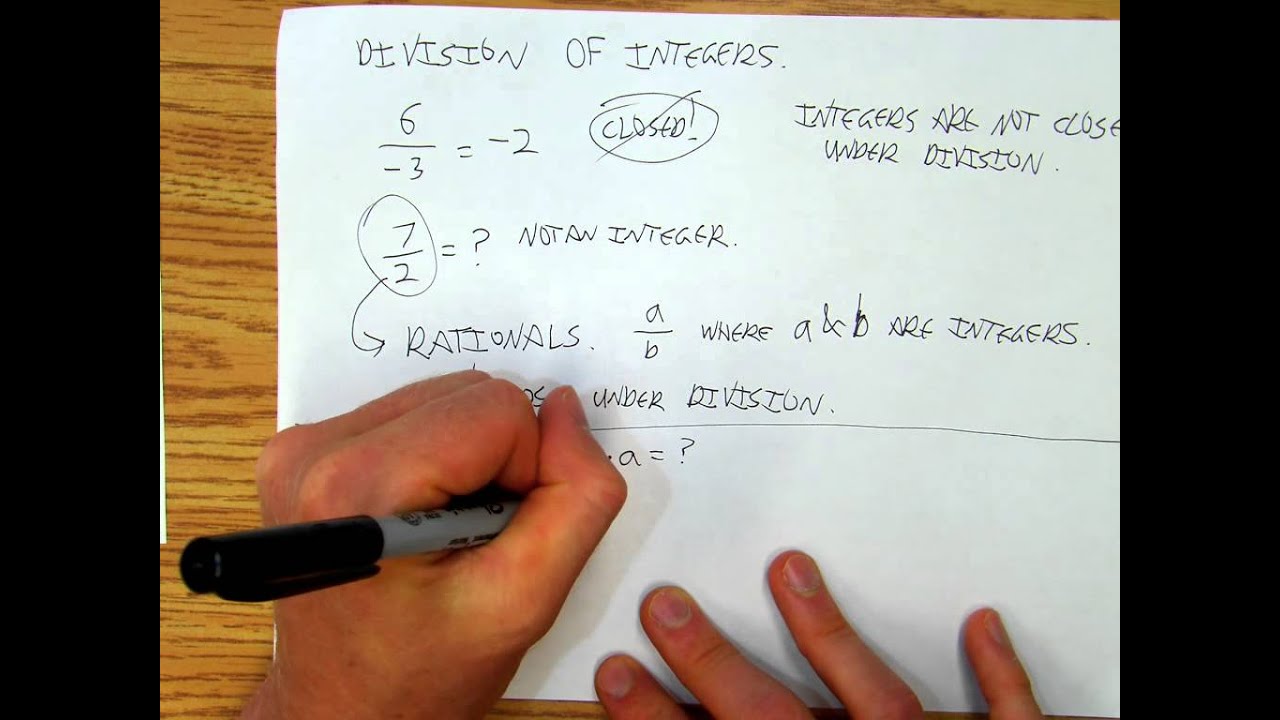 DIVISION OF INTEGERS.
6/-3 = -2 CLOSED!
INTEGERS ARE NOT CLOSE
UNDER DIVISION.
7/2 = ? NOT AN INTEGER.
→ RATIONALS. a/b WHERE a & b ARE INTEGERS.
UNDER DIVISION.
· a = ?